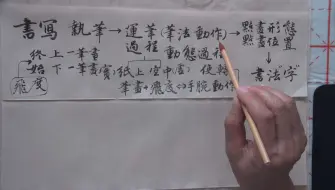 書寫 執筆→運筆(筆法動作)→點畫形態
過程 動態過程 點畫位置
終上一筆畫 ↓
始下一筆畫(實)紙上空中(虛) 使轉 書法"字"
飛度 筆畫+飛度⇔手腕動作